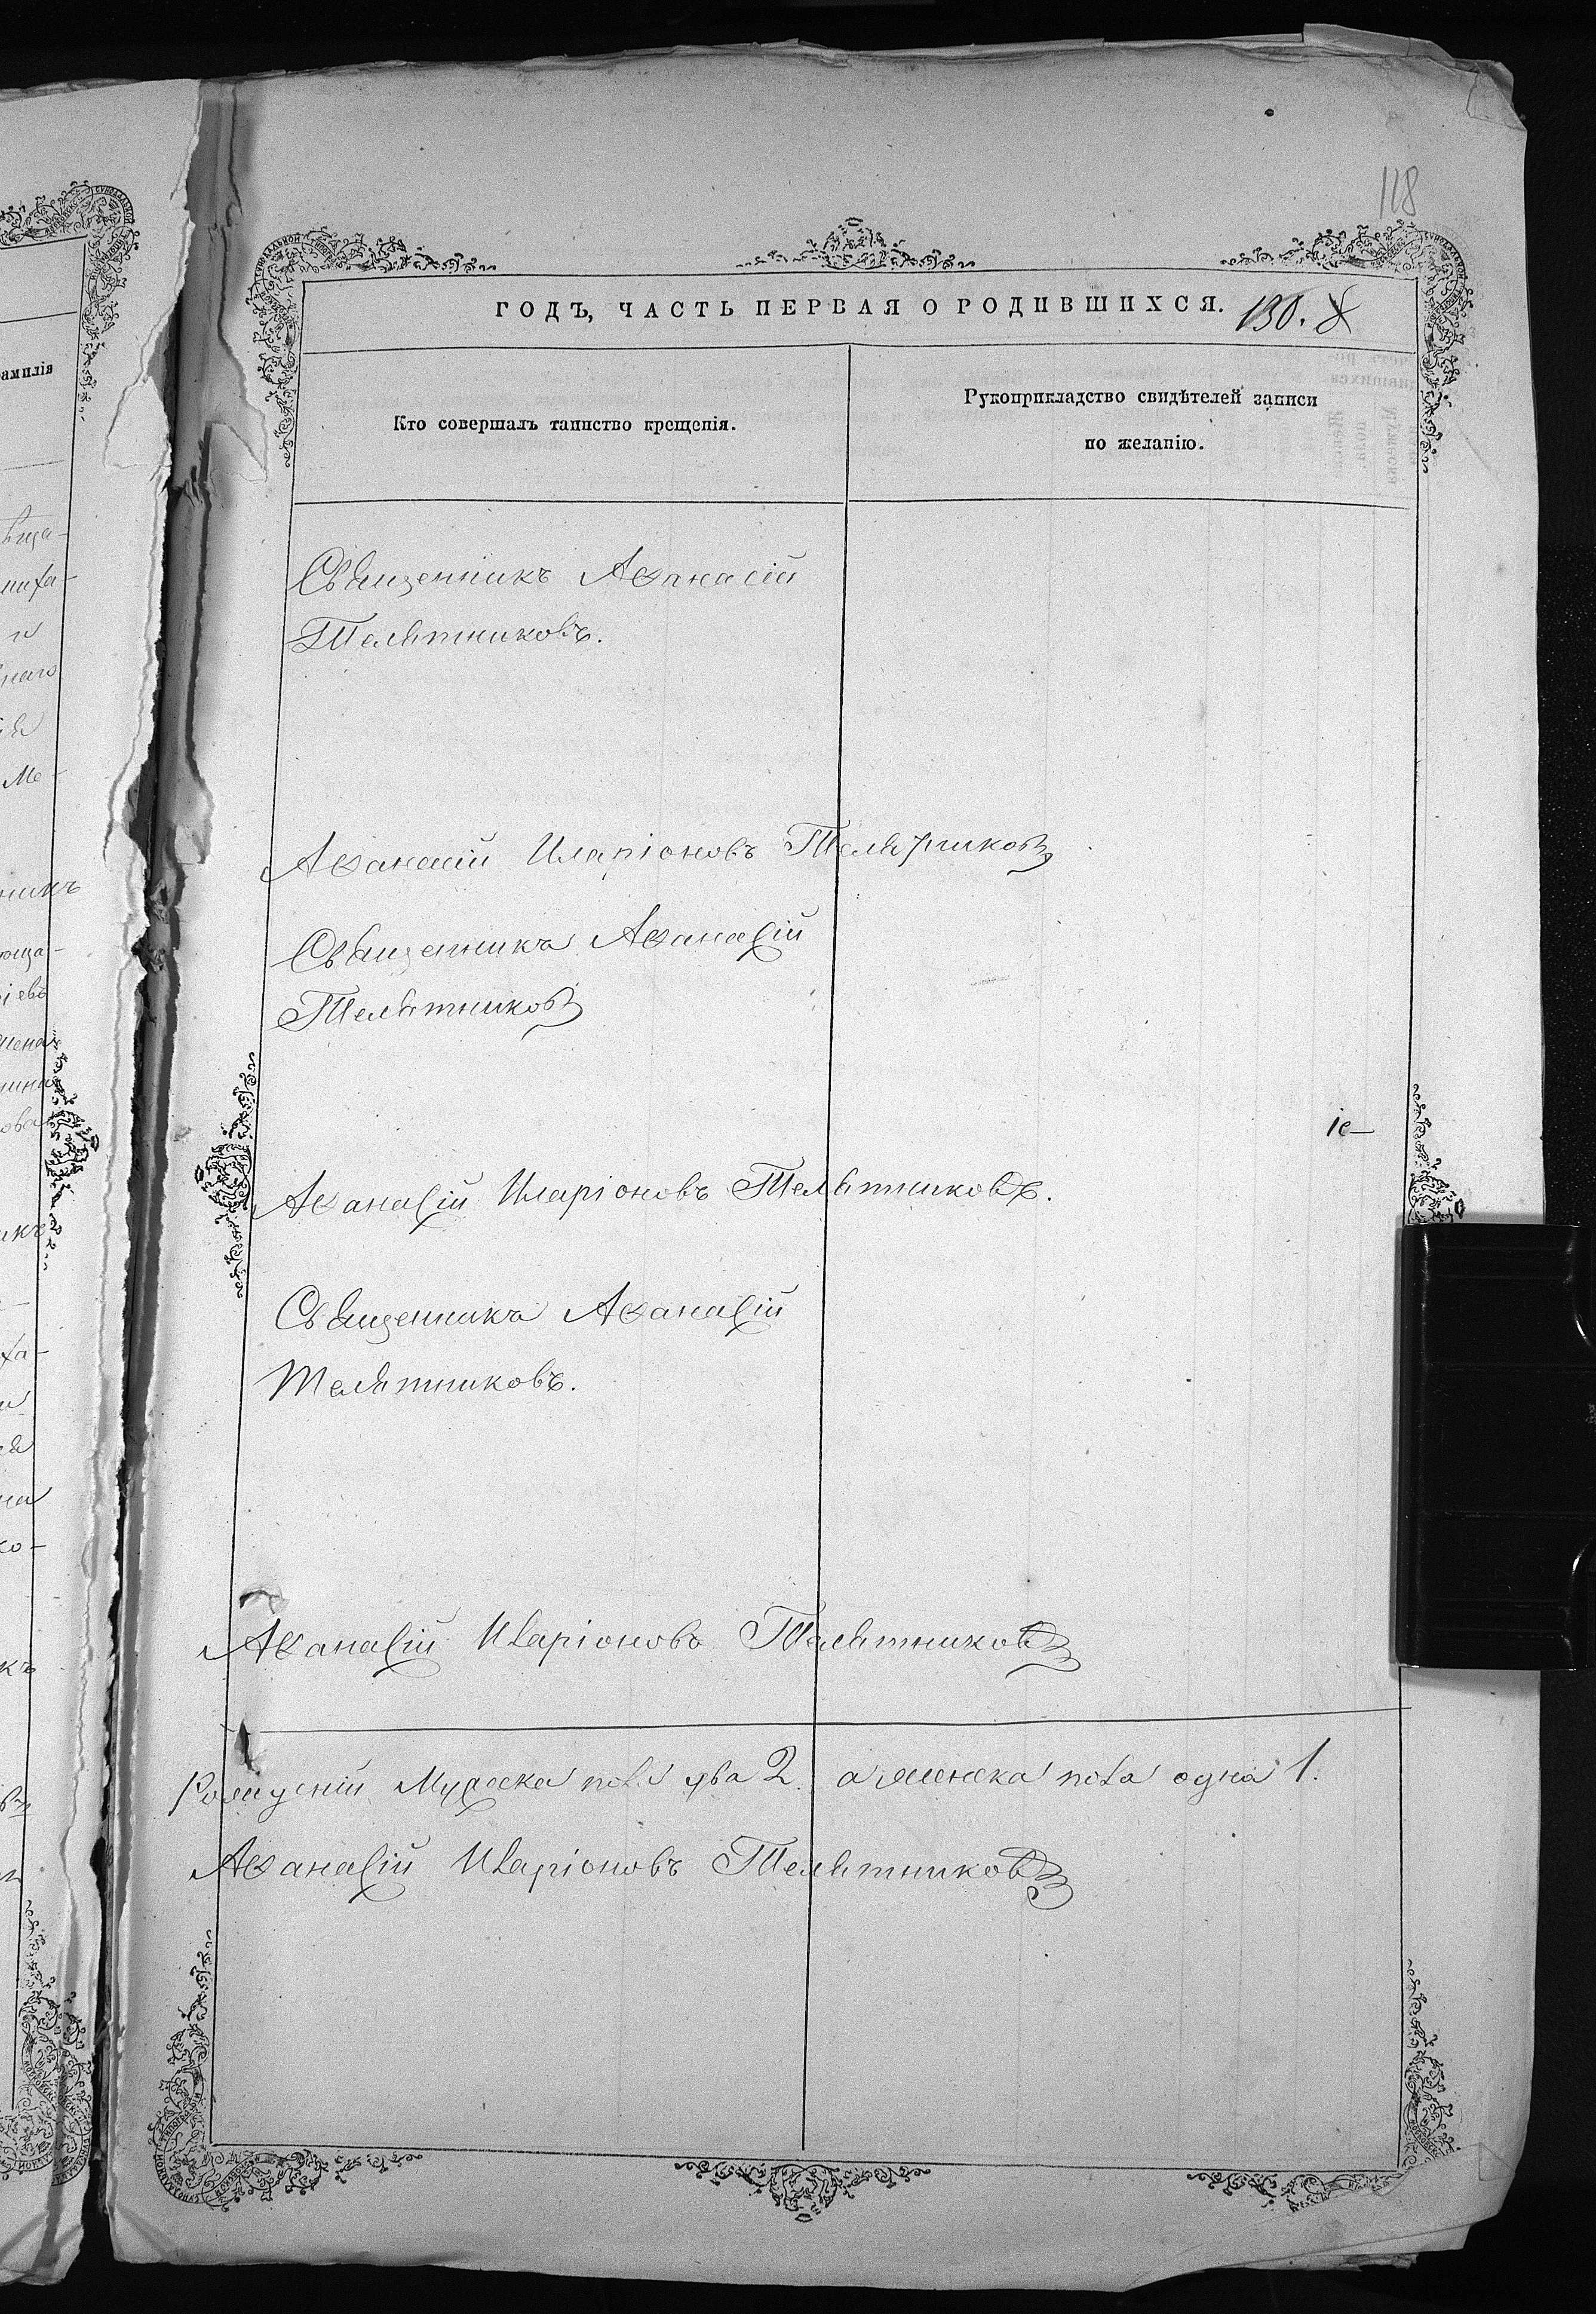 118
ГОДЪ, ЧАСТЬ ПЕРВАЯ О РОДИВШИХСЯ. 130.
Кто совершалъ таинство крещенія.
Рукоприкладство свидѣтелей записи
по желанію.
Священникъ Аѳанасій
Телятниковъ.
Аѳанасій Иларіоновъ Телятниковъ
Священникъ Аѳанасій
Телятниковъ
Аѳанасій Иларіоновъ Телятниковъ.
Священникъ Аѳанасій
Телятниковъ.
Аѳанасій Иларіоновъ Телятниковъ
Рожденій Мужеска пола два 2. а женска пола одна 1.
Аѳанасій Иларіоновъ Телятниковъ